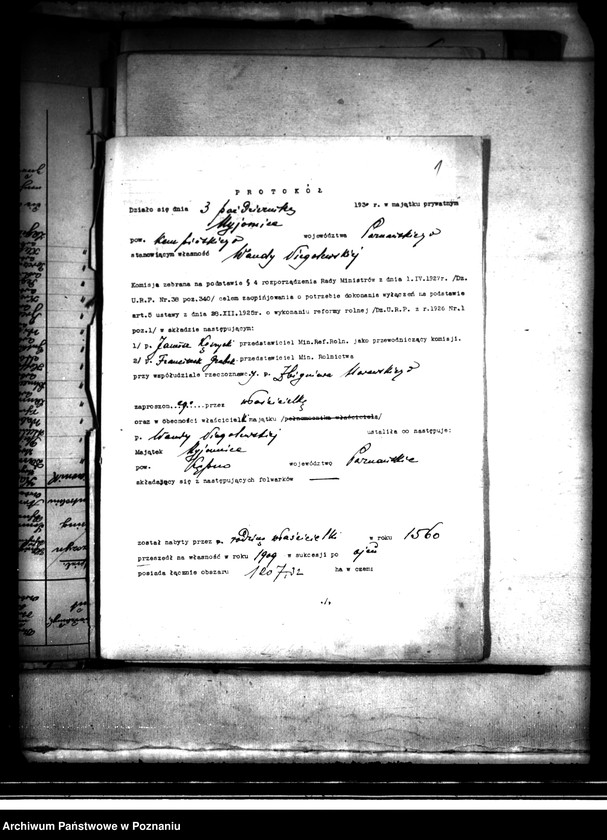 1
PROTOKÓŁ
Działo się dnia 3 października 193 r. w majątku prywatnym
Myjomice
pow. Kempińskiego województwa Poznańskiego
stanowiącym własność Wandy Niegolewskiej
Komisja zebrana na podstawie § 4 rozporządzenia Rady Ministrów z dnia 1.IV.1927r. /Dz.
U.R.P. Nr.38 poz.340/ celem zaopinjowania o potrzebie dokonania wyłączeń na podstawie
art.5 ustawy z dnia 28.XII.1925r. o wykonaniu reformy rolnej /Dz.U.R.P. z r.1926 Nr.1
poz.1/ w składzie następującym:
1/ p. Janusz przedstawiciel Min.Ref.Roln. jako przewodniczący komisji.
2/ p. Franciszek przedstawiciel Min. Rolnictwa
przy współudziale rzeczoznawcy p. Zbigniewa
zaproszonego przez właścicielkę
oraz w obecności właścicielki majątku /pełnomocnika właściciela/
p. Wandy Niegolewskiej ustaliła co następuje:
Majątek Myjomice
pow. Kępno województwo Poznańskie
składający się z następujących folwarków
został nabyty przez p. rodzinę właścicielki w roku 1560
przeszedł na własność w roku 1909 w sukcesji po ojcu
posiada łącznie obszaru 1207,32 ha w czem:
./.
Archiwum Państwowe w Poznaniu